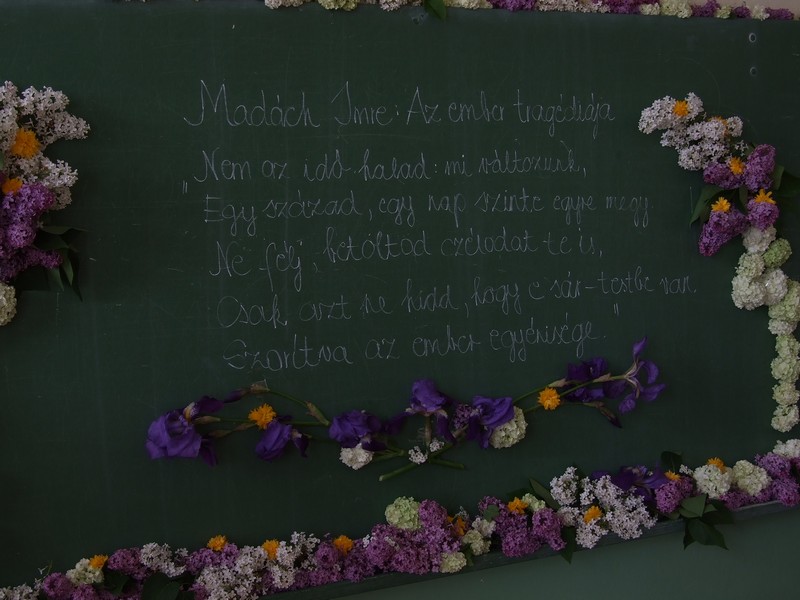 Madách Imre: Az ember tragédiája
"Nem az idő halad: mi változunk,
Egy század, egy nap szinte egyre megy.
Ne félj, betöltöd czélodat te is,
Csak azt ne hidd, hogy e sár-testbe van
Szorítva az ember egyénisége."